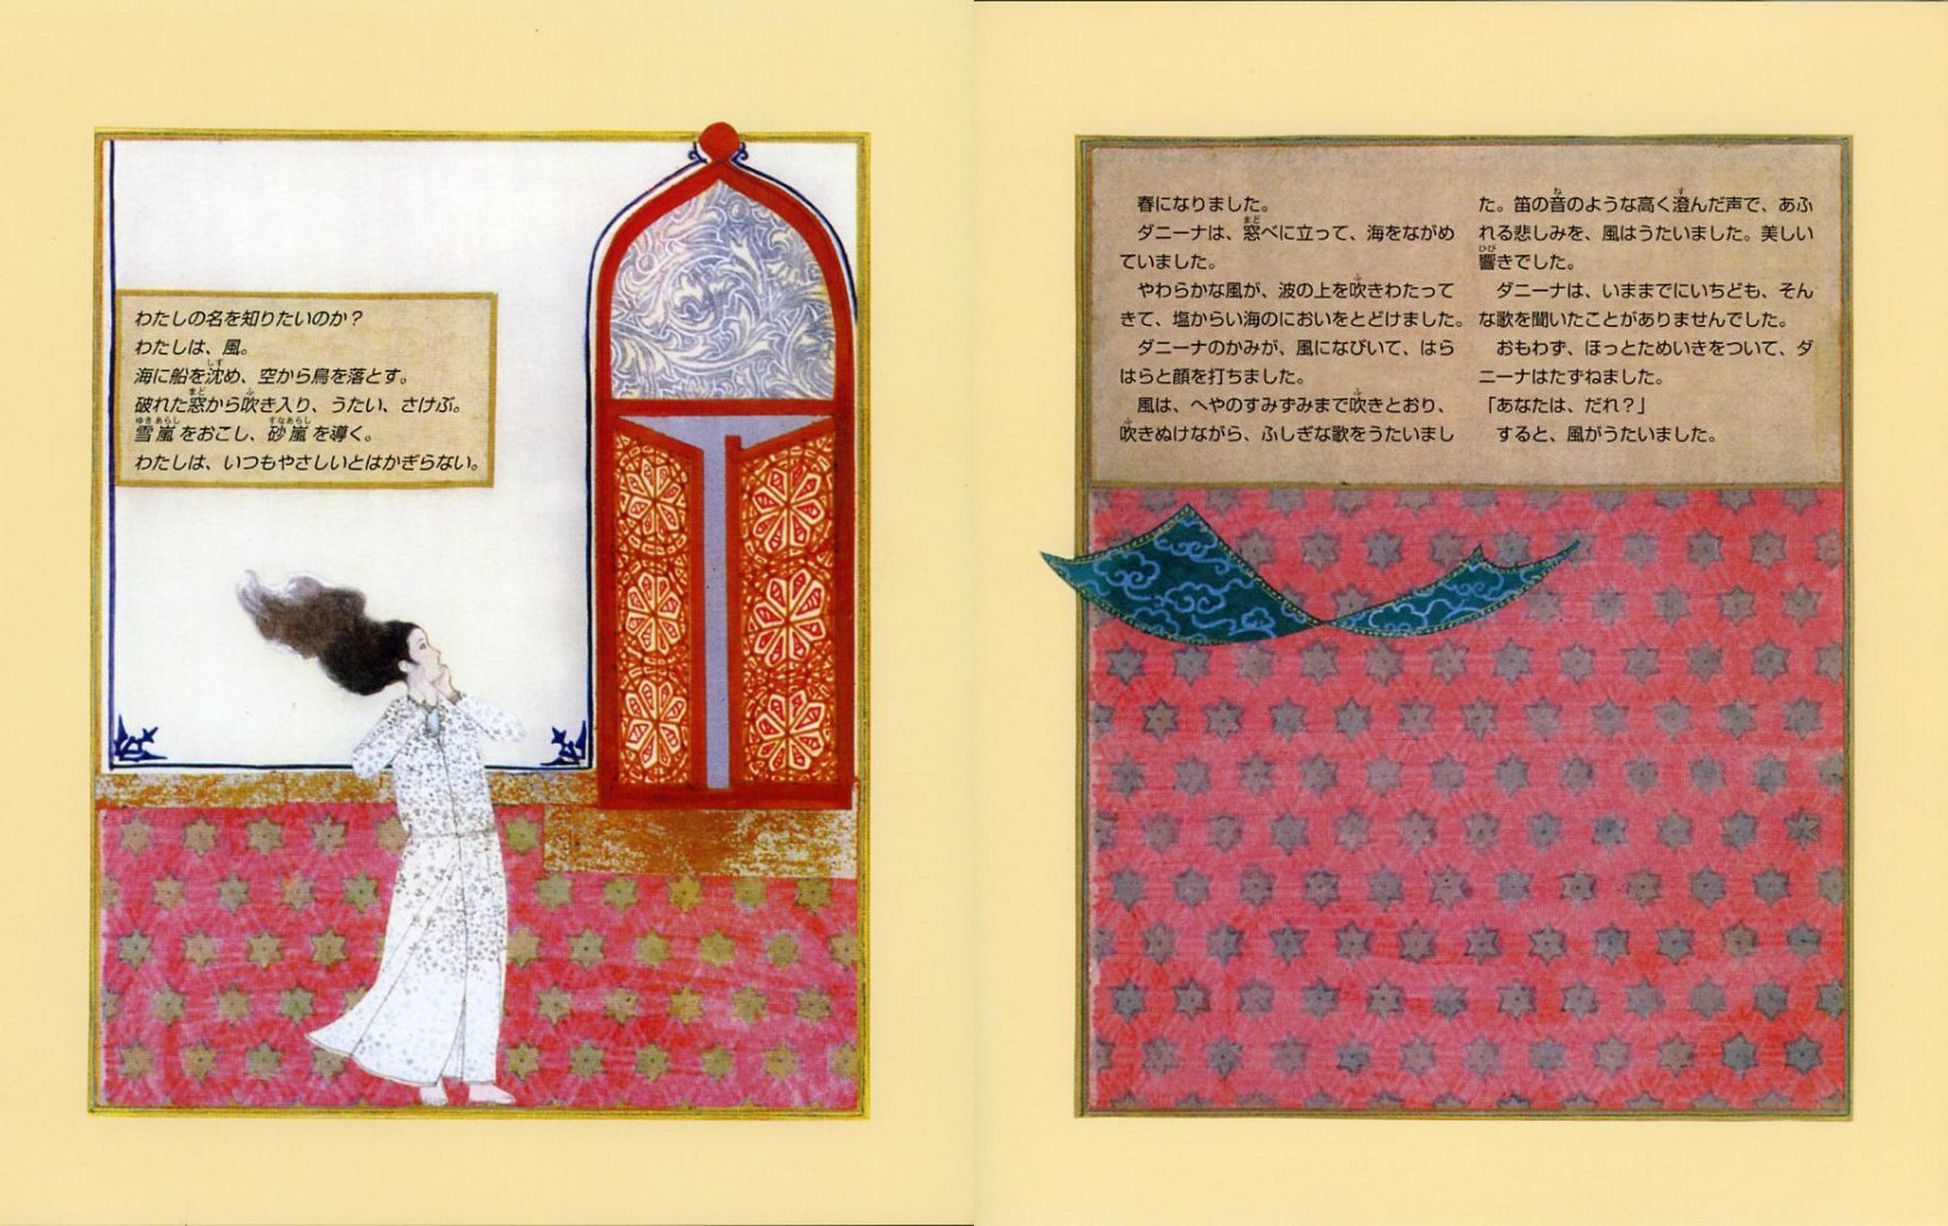 わたしの名を知りたいのか？
わたしは、風。
海に船を沈め、空から鳥を落とす。
破れた窓から吹き入り、うたい、さけぶ。
雪嵐をおこし、砂嵐を導く。
わたしは、いつもやさしいとはかぎらない。
春になりました。
ダニーナは、窓べに立って、海をながめ
ていました。
やわらかな風が、波の上を吹きわたって
きて、塩からい海のにおいをとどけました。
ダニーナのかみが、風になびいて、はら
はらと顔を打ちました。
風は、へやのすみずみまで吹きとおり、
吹きぬけながら、ふしぎな歌をうたいまし
た。笛の音のような高く澄んだ声で、あふ
れる悲しみを、風はうたいました。美しい
響きでした。
ダニーナは、いままでにいちども、そん
な歌を聞いたことがありませんでした。
おもわず、ほっとためいきをついて、ダ
ニーナはたずねました。
「あなたは、だれ？」
すると、風がうたいました。